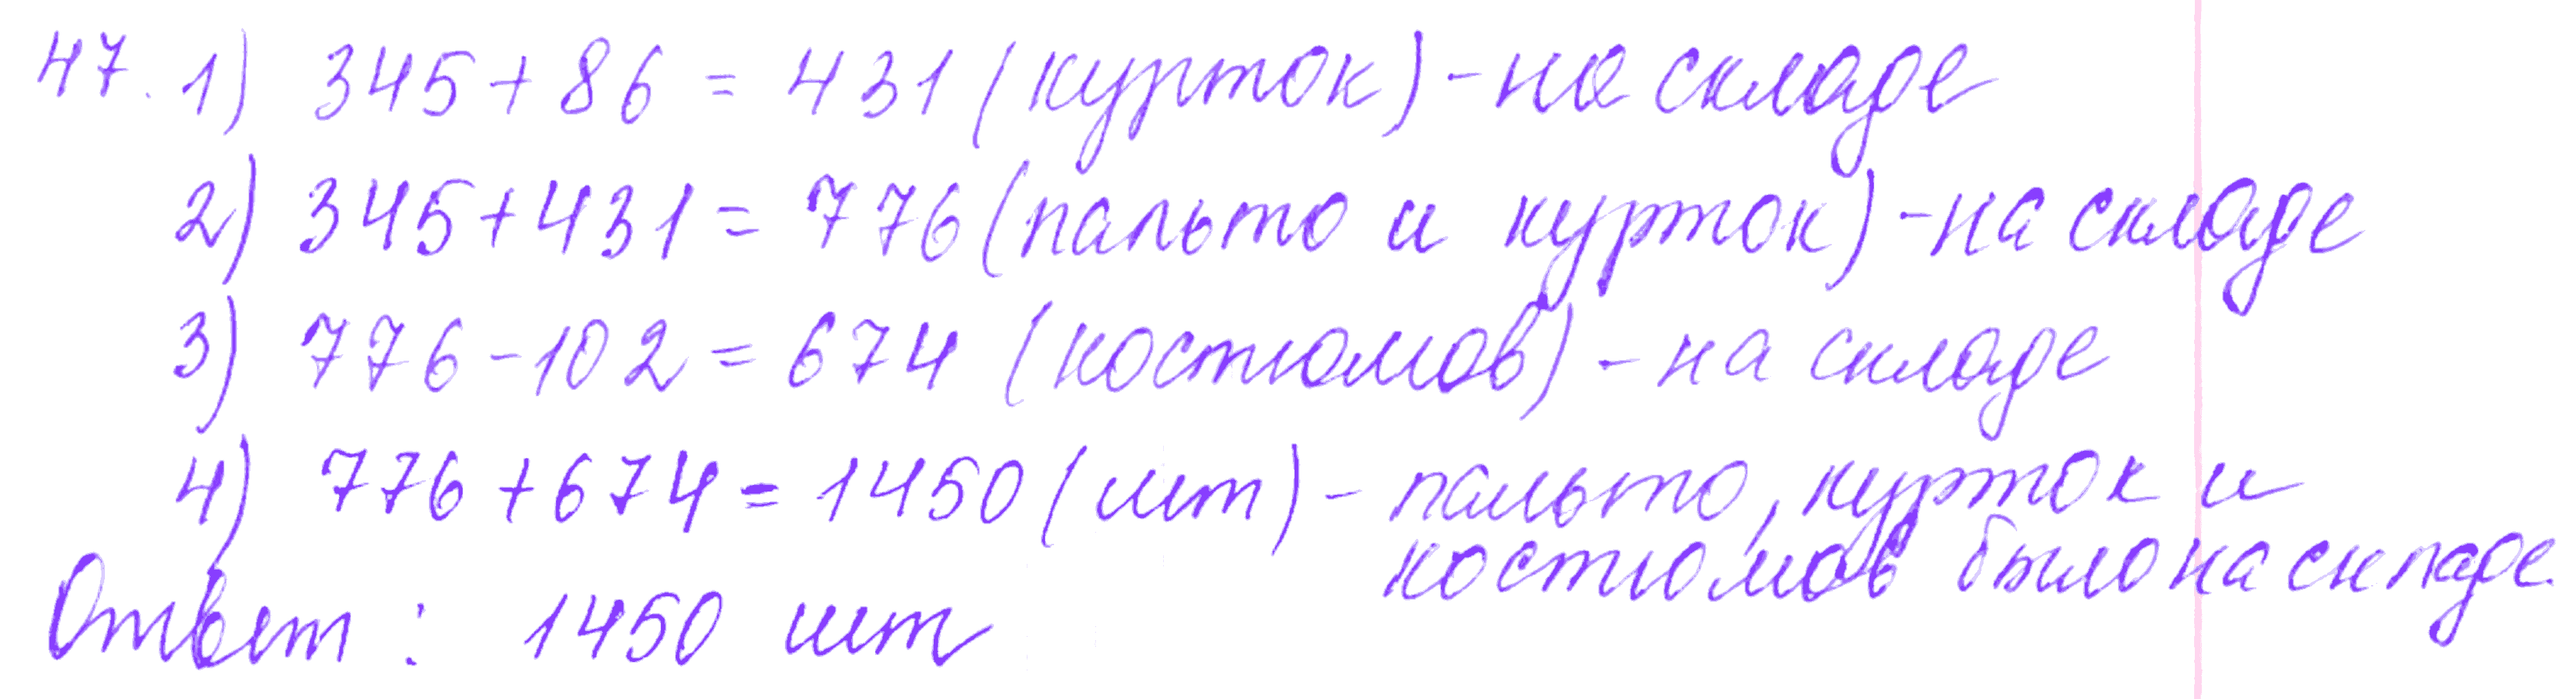 47. 1) 345 + 86 = 431 (курток) - на складе
2) 345 + 431 = 776 (пальто и курток) - на складе
3) 776 - 102 = 674 (костюмов) - на складе
4) 776 + 674 = 1450 (шт) - пальто, курток и
костюмов было на складе.
Ответ: 1450 шт